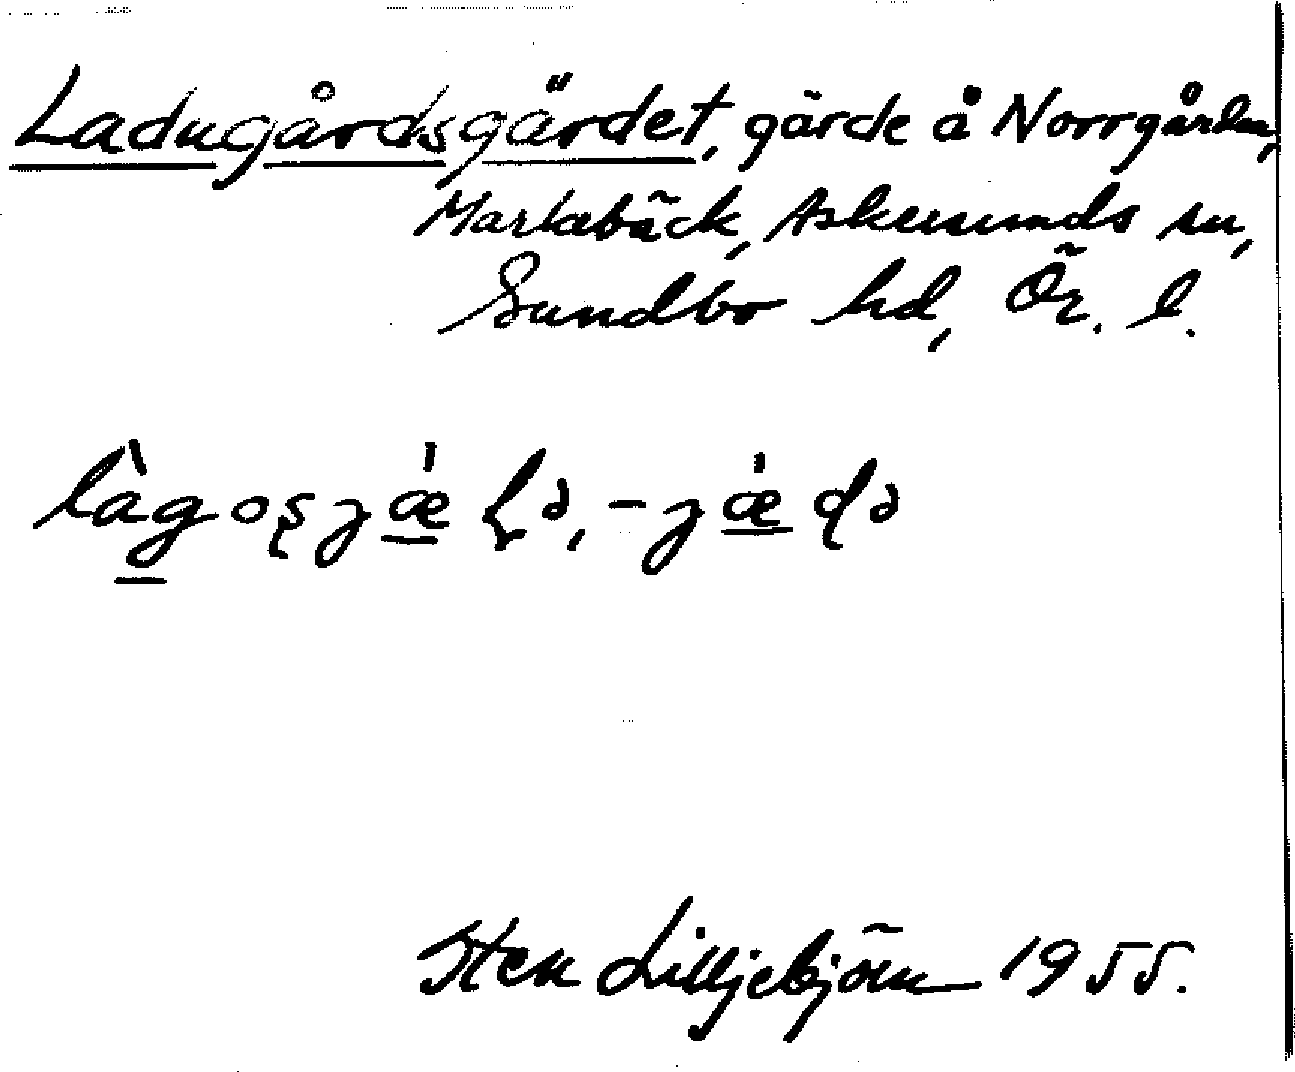 Ladugårdsgärdet, gärde å Norrgården,
Markebäck, Askersunds sn,
Sundbo hd, Ör. l.
Sten Lilljebjörn 1955.